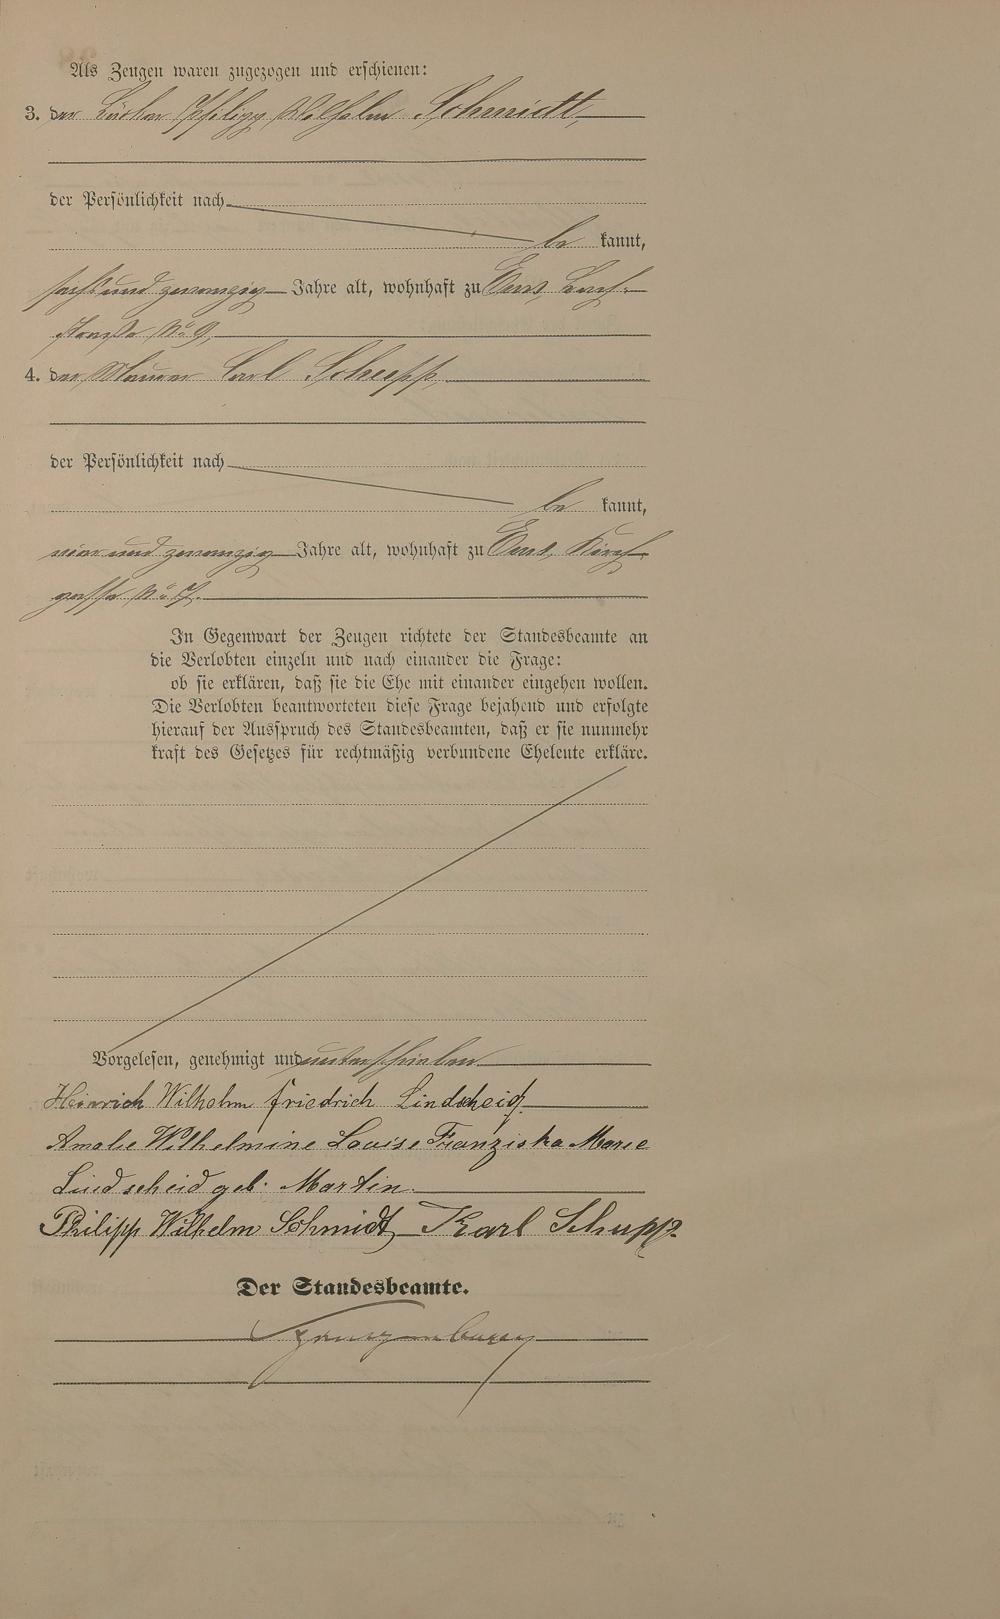 Als Zeugen waren zugezogen und erschienen:
3. der Bäcker Philipp Wilhelm Schmidt,
der Persönlichkeit nach
be kannt,
sechs und zwanzig Jahre alt, wohnhaft zu Ems, Bach-
straße No 9,
4. der Maurer Carl Schupp,
der Persönlichkeit nach
be kannt,
vier und zwanzig Jahre alt, wohnhaft zu Ems, Kirch-
gasse No 7.
In Gegenwart der Zeugen richtete der Standesbeamte an
die Verlobten einzeln und nach einander die Frage:
ob sie erklären, daß sie die Ehe mit einander eingehen wollen.
Die Verlobten beantworteten diese Frage bejahend und erfolgte
hierauf der Ausspruch des Standesbeamten, daß er sie nunmehr
kraft des Gesetzes für rechtmäßig verbundene Eheleute erkläre.
Vorgelesen, genehmigt und unterschrieben
Heinrich Wilhelm Friedrich Lindscheid
Amalie Wilhelmine Louise Franziska Marie
Lindscheid geb. Martin.
Philipp Wilhelm Schmidt Karl Schupp.
Der Standesbeamte.